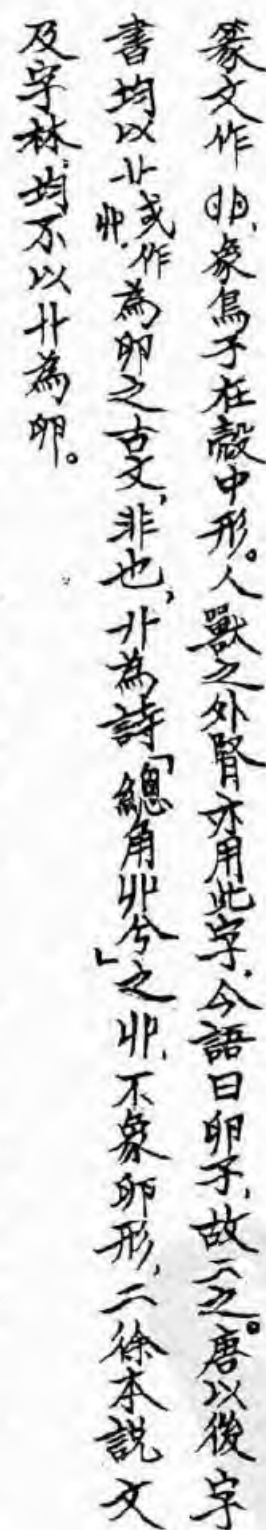 篆文作卵,象鳥子在殼中形。人獸之外腎亦用此字,今語曰卵子,故二之。唐以後字
書均以卝或作丱,為卵之古文,非也,卝為詩「總角丱兮」之丱,不象卵形,二徐本說文
及字林,均不以卝為卵。